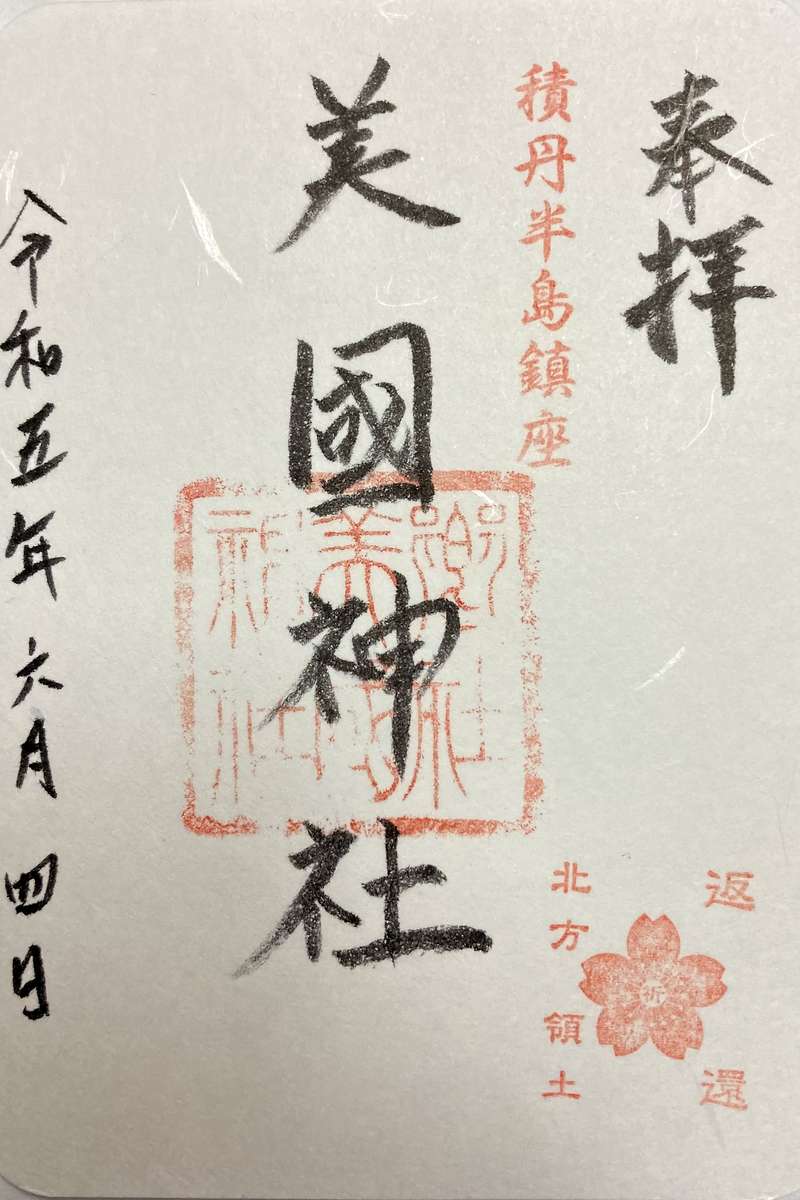 奉拝
積丹半島鎮座
美國神社
令和五年六月四日
返還
祈
北方領土